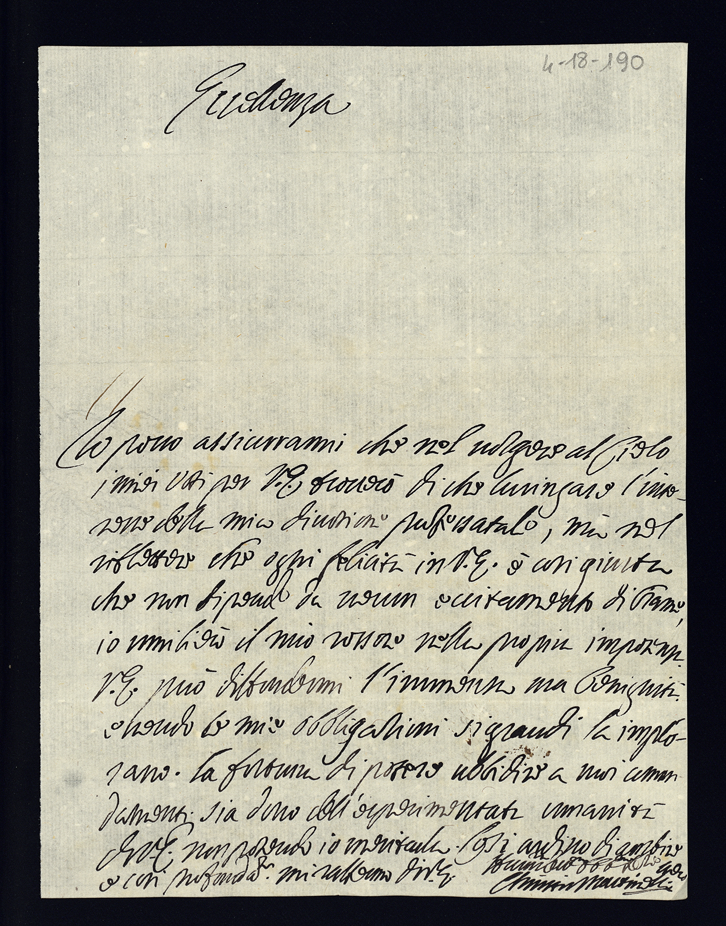 4-18-190
Eccellenza
Io posso assicurarmi che nel volgere al Cielo
i miei Voti per V.E. troverò di che lusingare l'inte-
resse della mia divotione professatale, mà nel
riflettere che ogni felicità in V.E. è così giusta
che non dipende da verun eccitamento di brame,
io umilierò il mio rossore nella propria impotenza.
V.E. può diffondermi l'immensa sua Benignità.
essendo le mie obbligationi sì grandi la implo-
rano. la fortuna di potere ubbidire a suoi coman
damenti sia dono dell'esperimentata umanità
di V.E. non potendo io meritarla. Così ardisco di ambire
e così profonda.te mi rassegno di V.E.